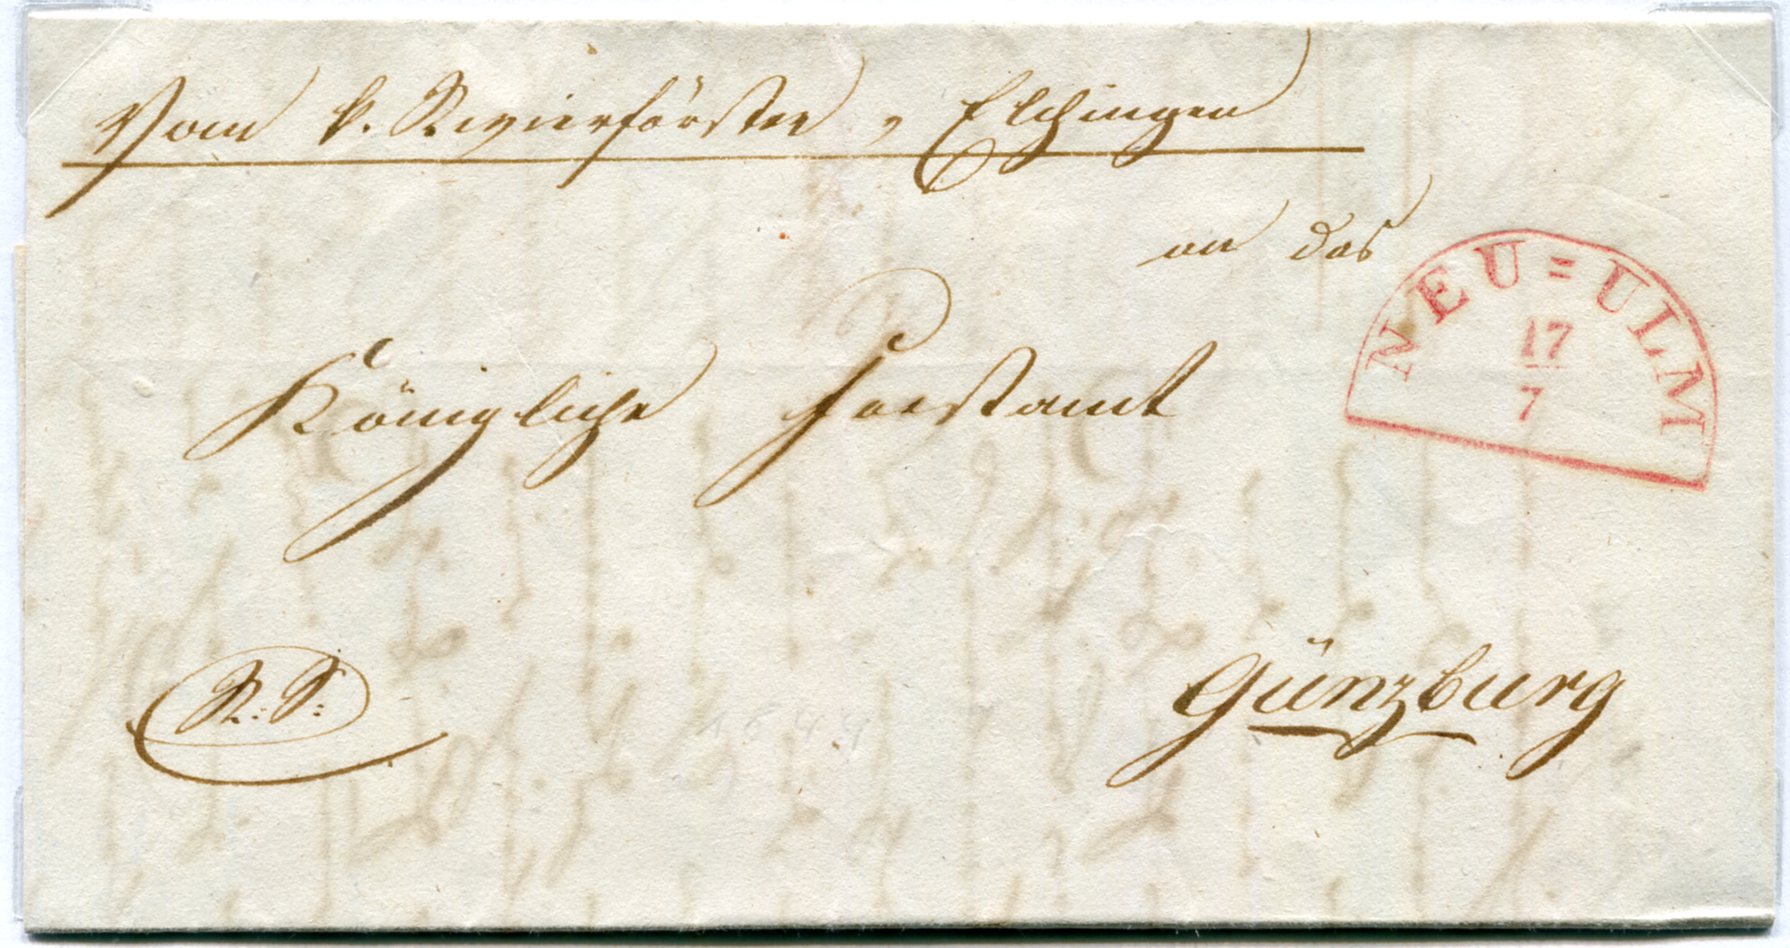 Vom k. Revierförster, Elchingen
an das
NEU=ULM
17
7
Königliche Forstamt
R. S.
Günzburg
1844